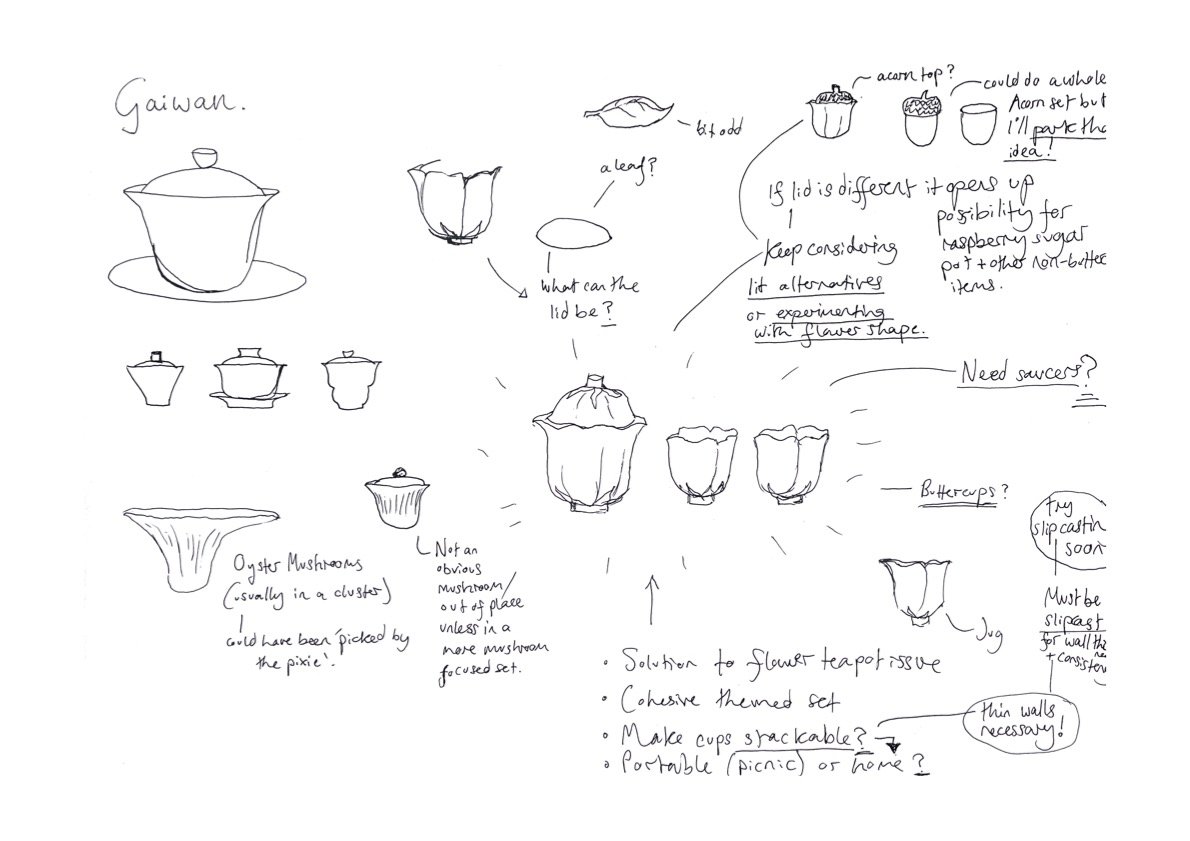 Gaiwan.
bit odd
a leaf?
what can the
lid be?
acorn top?
could do a whole
Acorn set but
I'll park the
idea!
If lid is different it opens up
possibility for
raspberry sugar
pot + other non-butter
items.
Keep considering
lit alternatives
or experimenting
with flower shape.
Need saucers?
Buttercups?
Try
slipcastin
soon
Must be
slipcast
for wall the
ne
+ consisten
Jug
thin walls
necessary!
Oyster Mushrooms
(usually in a cluster)
could have been 'picked by
the pixie'.
Not an
obvious
mushroom/
out of place
unless in a
more mushroom
focused set.
• Solution to flower teapot issue
• Cohesive themed set
• Make cups stackable?
• Portable (picnic) or home?